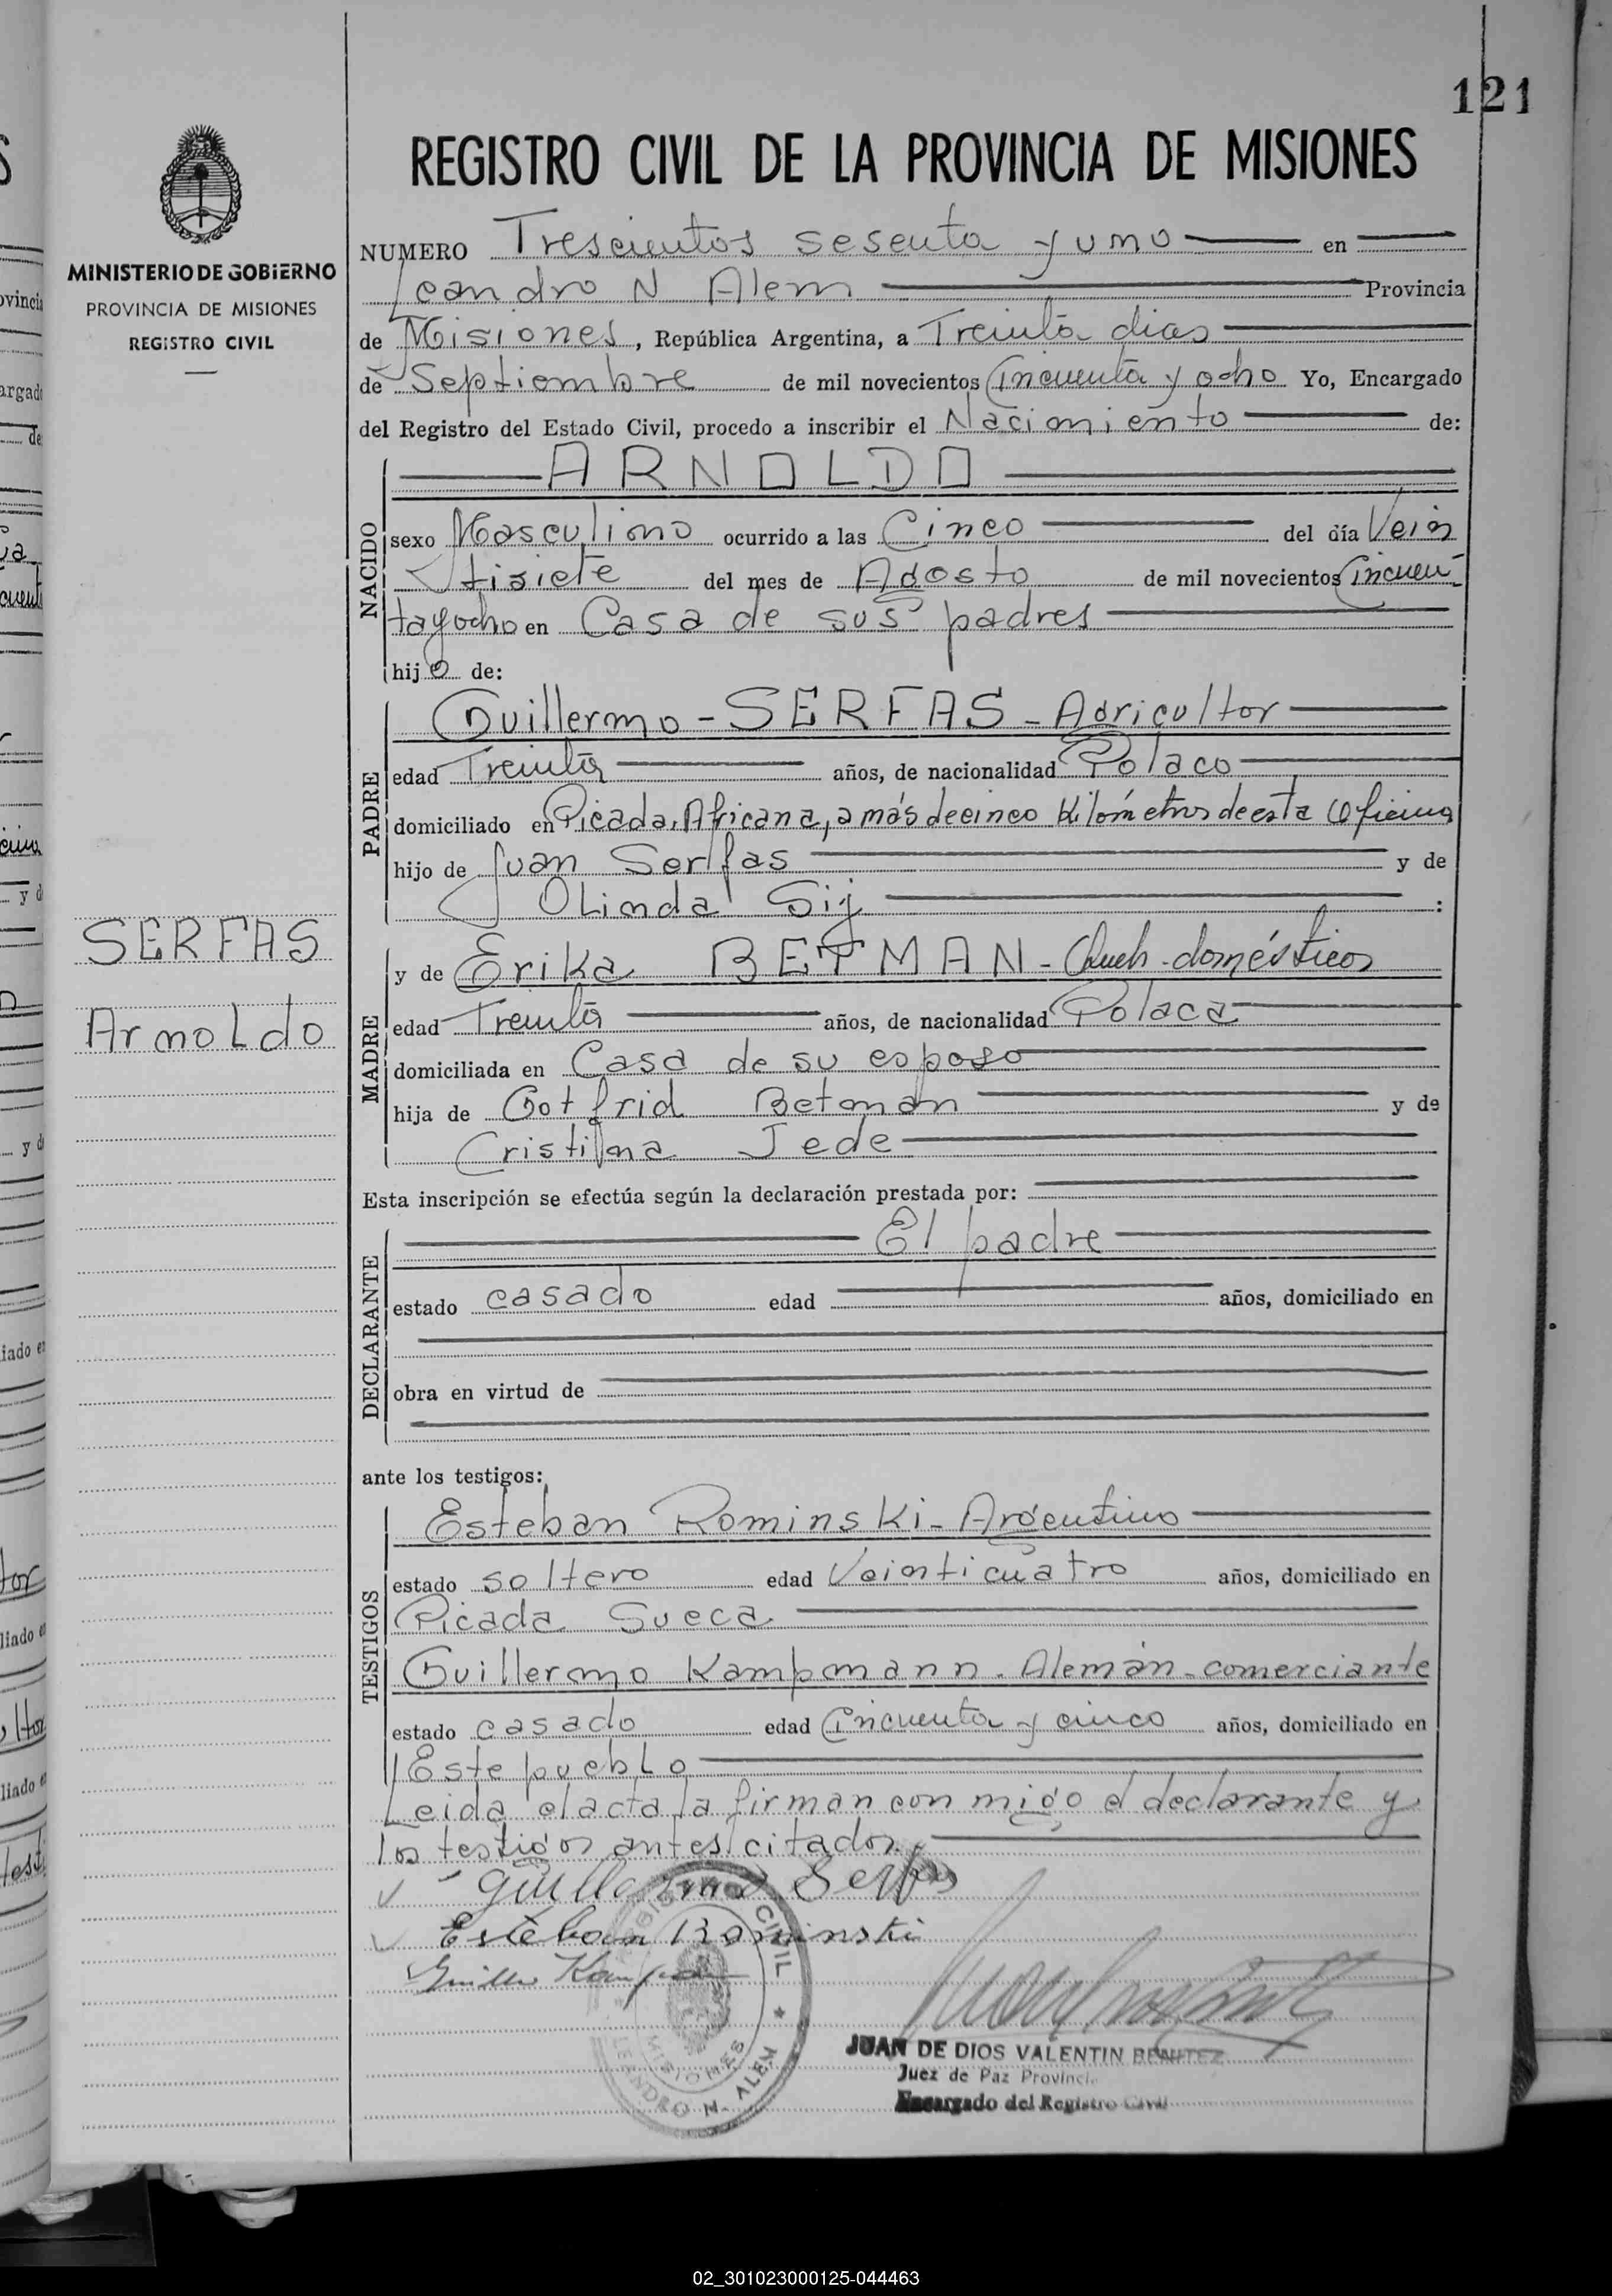 121
REGISTRO CIVIL DE LA PROVINCIA DE MISIONES
MINISTERIO DE GOBIERNO
PROVINCIA DE MISIONES
REGISTRO CIVIL
NUMERO Trescientos sesenta y uno en
Leandro N Alem Provincia
de Misiones, República Argentina, a Treinta dias
de Septiembre de mil novecientos Cincuenta y ocho Yo, Encargado
del Registro del Estado Civil, procedo a inscribir el Nacimiento de:
NACIDO
ARNOLDO
sexo Masculino ocurrido a las Cinco del día Vein
tisiete del mes de Agosto de mil novecientos Cincuen-
tayocho en Casa de sus padres
hijo de:
PADRE
Guillermo - SERFAS - Agricultor
edad Treinta años, de nacionalidad Polaco
domiciliado en Picada Africana, a más de cinco Kilómetros de esta Oficina
hijo de Juan Serfas y de
Olinda Sij :
SERFAS
Arnoldo
MADRE
y de Erika BETMAN - Queh. domésticos
edad Treinta años, de nacionalidad Polaca
domiciliada en Casa de su esposo
hija de Gotfrid Betman y de
Cristina Jede
Esta inscripción se efectúa según la declaración prestada por:
DECLARANTE
El padre
estado casado edad años, domiciliado en
obra en virtud de
ante los testigos:
TESTIGOS
Esteban Rominski - Argentino
estado soltero edad Veinticuatro años, domiciliado en
Picada Sueca
Guillermo Kampmann. Alemán - comerciante
estado casado edad Cincuenta y cinco años, domiciliado en
Este pueblo
Leida el acta la firman con migo el declarante y
los testigos antes citados.
Guillermo Serfas
Esteban Rominski
REGISTRO CIVIL
MISIONES
LEANDRO N. ALEM
JUAN DE DIOS VALENTIN BENITEZ
Juez de Paz
Encargado del Registro Civil
02_301023000125-044463